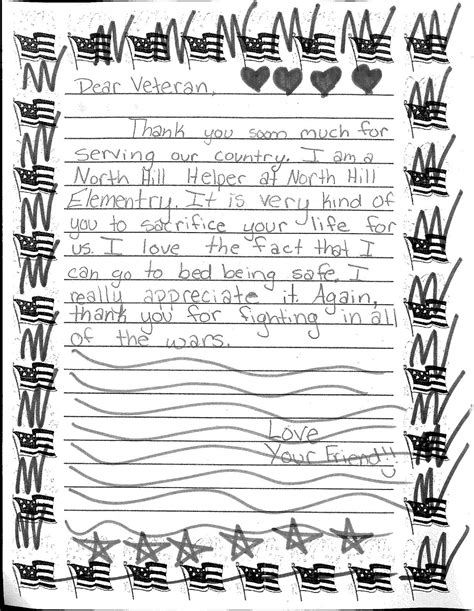 Dear Veteran,
Thank you soom much for
serving our country. I am a
North Hill Helper at North Hill
Elementry. It is very kind of
you to sacrifice your life for
us. I love the fact that I
can go to bed being safe. I
really appreciate it. Again,
thank you for fighting in all
of the wars.
Love
Your Friend!!